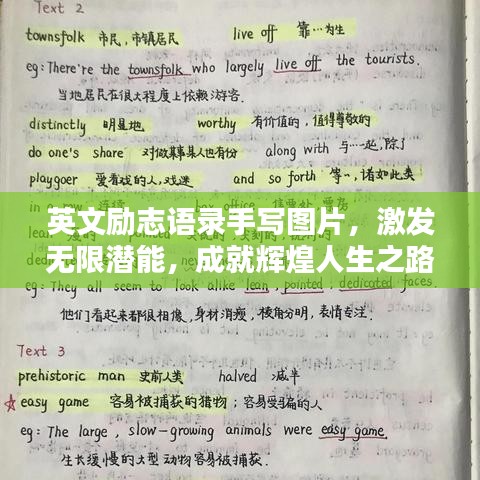 Text 2
townsfolk 市民,市镇居民 live off 靠…为生
eg: There're the townsfolk who largely live off the tourists.
当地居民在很大程度上依赖游客.
distinctly 明显地 worthy 有价值的,值得尊敬的
do one's share 对做某事某人也有份 along with 与…一起,除了
playgoer 爱看戏的人,戏迷 and so forth 等…,诸如此类
in a row
英文励志语录手写图片，激发
无限潜能，成就辉煌人生之路
eg: They all seem to look alike lean, pointed, dedicated faces.
他们看起来都很相像,身材消瘦,棱角分明,表情专注.
Text 3
prehistoric man 史前人类 halved 减半
☆easy game 容易被捕获的猎物;容易受骗的人
eg: The large, slow-growing animals were easy game.
生长缓慢的大型动物容易被捕获.